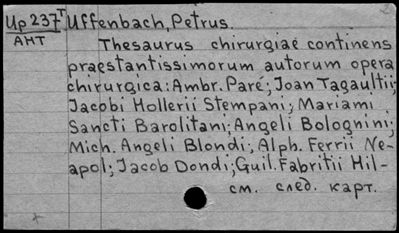 Up 237 т Uffenbach, Petrus.
АНТ
Thesaurus chirurgiae continens
praestantissimorum autorum opera
chirurgica: Ambr. Paré; Joan Tagaultii;
Jacobi Hollerii Stempani; Mariami
Sancti Barolitani; Angeli Bolognini;
Mich. Angeli Blondi; Alph. Ferrii Ne-
apol; Jacob Dondi; Guil. Fabritii Hil-
см. след. карт.